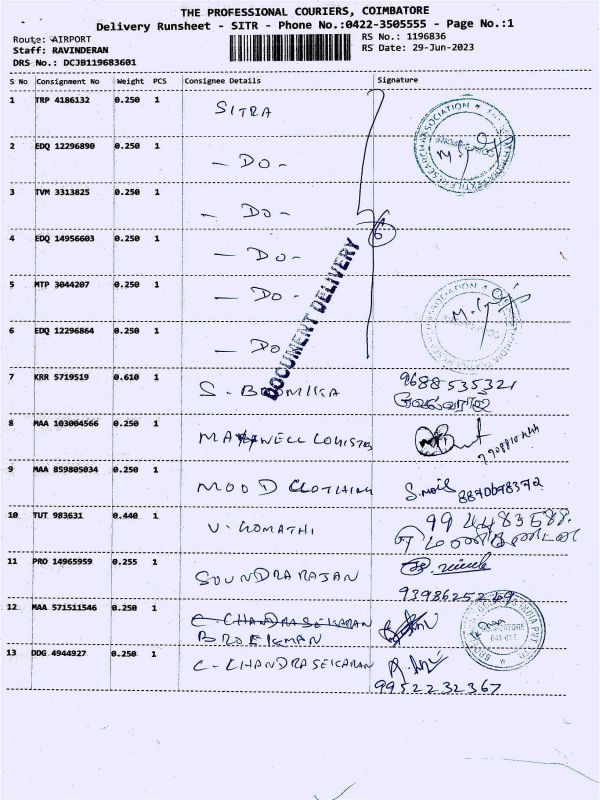 THE PROFESSIONAL COURIERS, COIMBATORE
Delivery Runsheet - SITR - Phone No.:0422-3505555 - Page No.:1
Route: AIRPORT RS No.: 1196836
Staff: RAVINDERAN RS Date: 29-Jun-2023
DRS No.: DCJB119683601
S No Consignment No Weight PCS Consignee Details Signature
1 TRP 4186132 0.250 1 SITRA
2 EDQ 12296890 0.250 1 - DO -
3 TVM 3313825 0.250 1 - DO -
6
4 EDQ 14956603 0.250 1 - DO -
5 MTP 3044207 0.250 1 - DO -
DOCUMENT DELIVERY
6 EDQ 12296864 0.250 1 - DO
7 KRR 5719519 0.610 1 S. BOOMIKA 9688535321
8 MAA 103004566 0.250 1
9 MAA 859805034 0.250 1 MOOD CLOTHING 8870078372
10 TUT 983631 0.440 1 V. GOMATHI
11 PRO 14965959 0.255 1 SOUNDRARAJAN
12 MAA 571511546 0.250 1 C CHANDRASEKARAN
BROEKMAN
13 DDG 4944927 0.250 1 C. CHANDRASEKARAN
9952232367